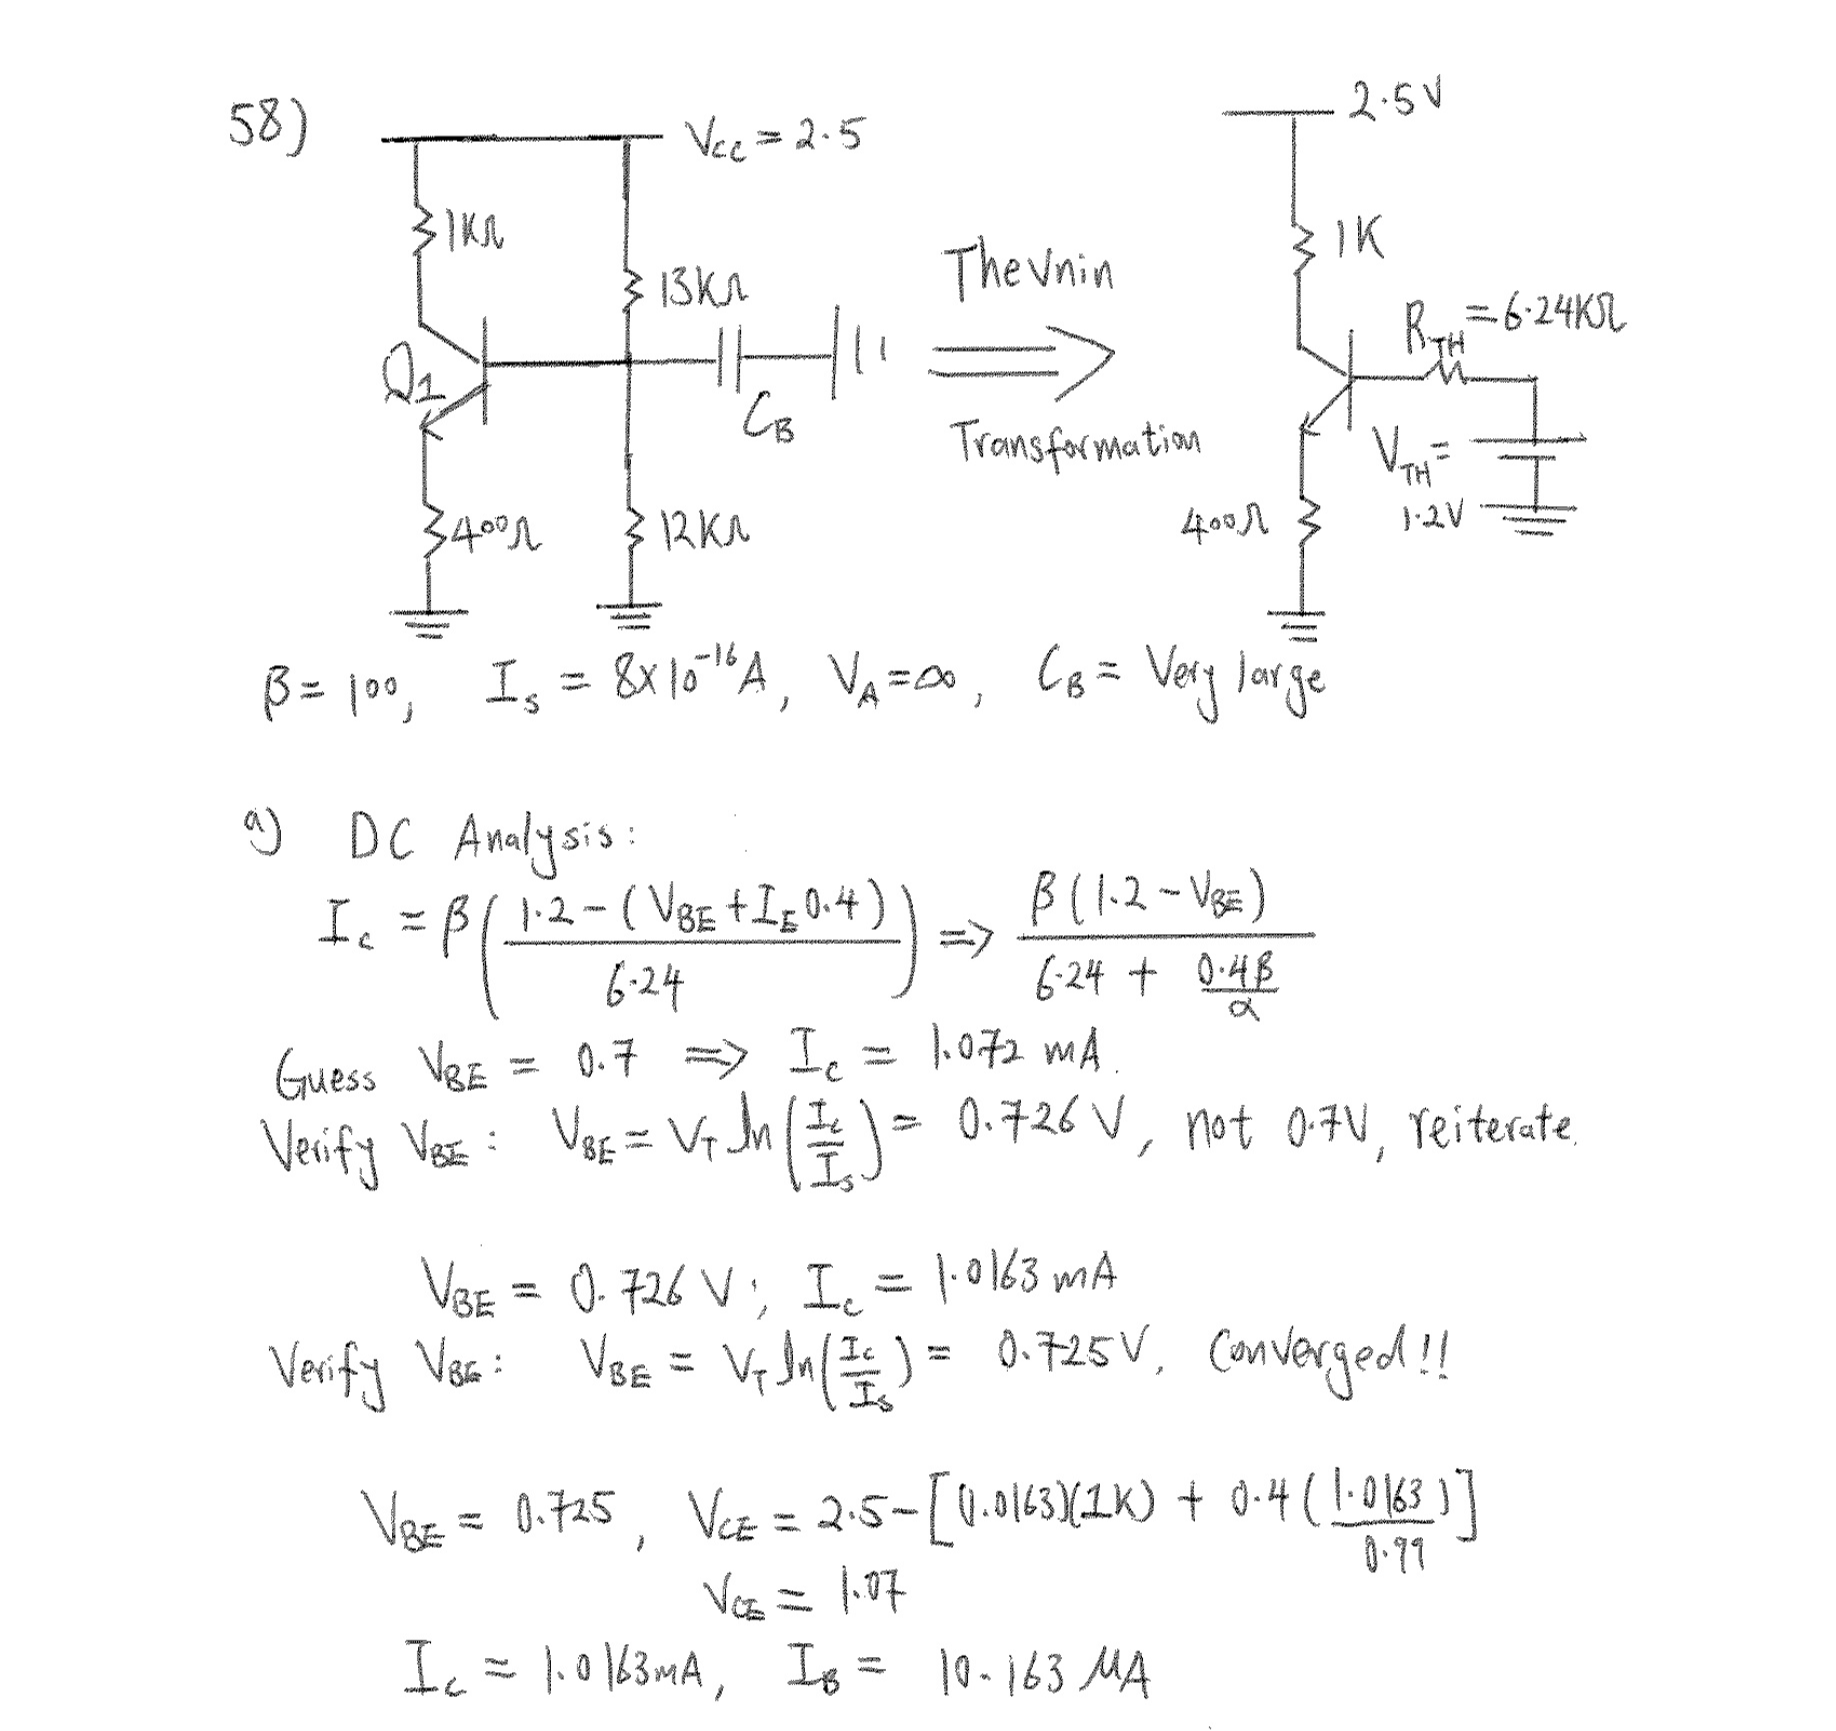 58)
Vcc = 2.5
2.5V
1KΩ
13KΩ
Thevnin
1K
R_TH = 6.24KΩ
Q1
C_B
Transformation
V_TH =
1.2V
400Ω
12KΩ
400Ω
β = 100, I_s = 8x10^-16 A, V_A = ∞, C_B = Very large
a) DC Analysis:
I_c = β( (1.2 - (V_BE + I_E 0.4)) / 6.24 ) => β(1.2 - V_BE) / (6.24 + 0.4β/α)
Guess V_BE = 0.7 => I_c = 1.072 mA.
Verify V_BE : V_BE = V_T ln(I_c/I_s) = 0.726 V, not 0.7V, reiterate.
V_BE = 0.726 V; I_c = 1.0163 mA
Verify V_BE: V_BE = V_T ln(I_c/I_s) = 0.725V, Converged!!
V_BE = 0.725, V_CE = 2.5 - [(1.0163)(1K) + 0.4(1.0163/0.99)]
V_CE = 1.07
I_c = 1.0163mA, I_B = 10.163 μA